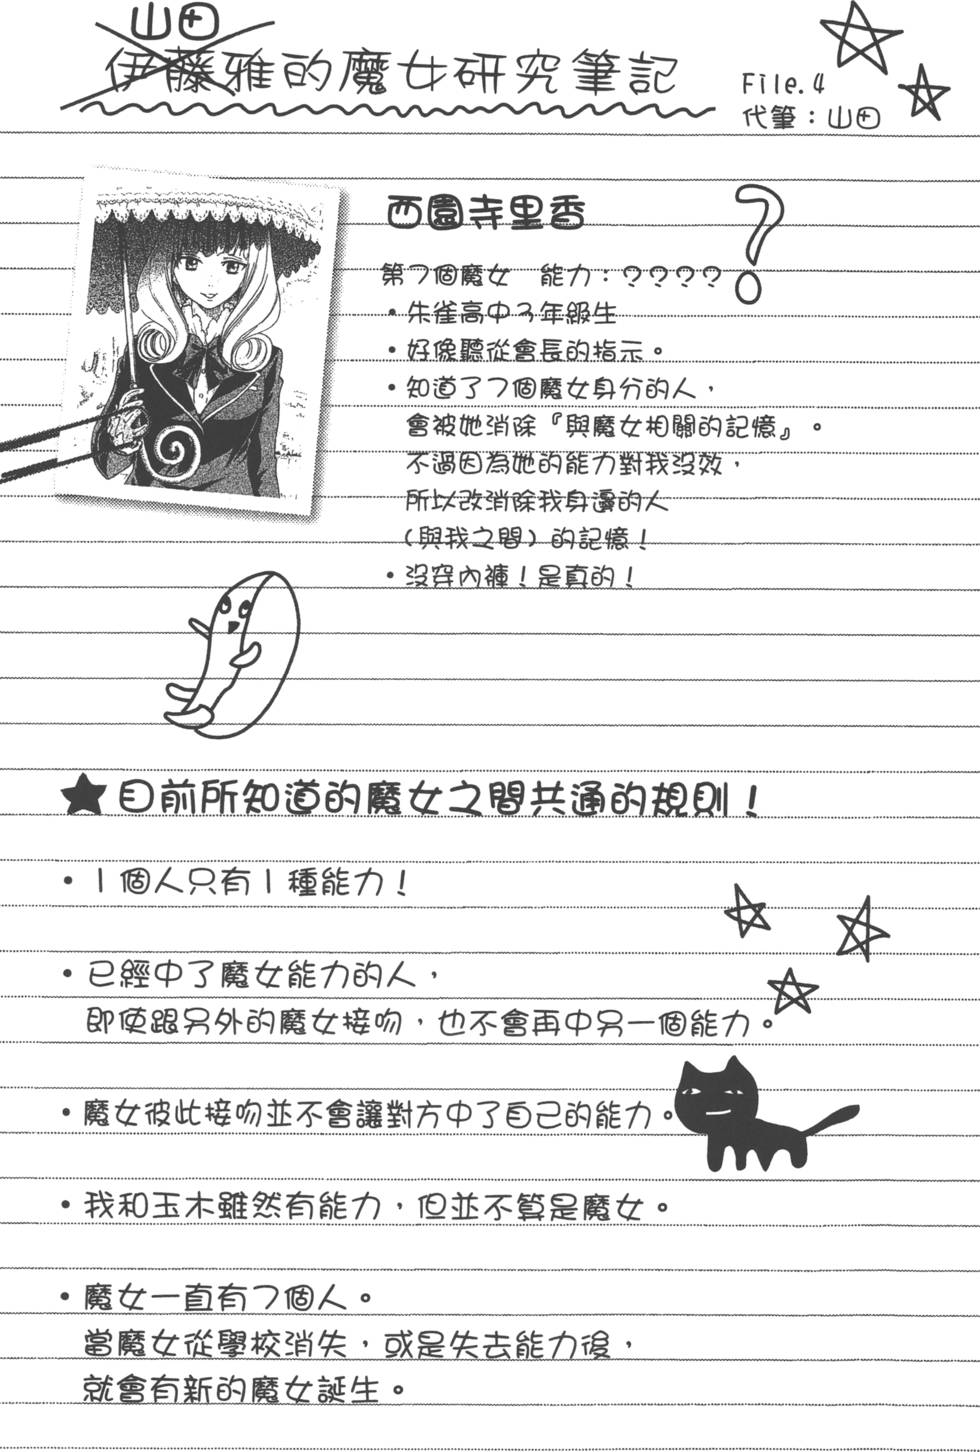 山田
伊藤雅的魔女研究筆記
File.4
代筆：山田
西園寺里香
第7個魔女　能力：？？？？
・朱雀高中3年級生
・好像聽從會長的指示。
・知道了7個魔女身分的人，
會被她消除『與魔女相關的記憶』。
不過因為她的能力對我沒效，
所以改消除我身邊的人
（與我之間）的記憶！
・沒穿內褲！是真的！
★目前所知道的魔女之間共通的規則！
・1個人只有1種能力！
・已經中了魔女能力的人，
即使跟另外的魔女接吻，也不會再中另一個能力。
・魔女彼此接吻並不會讓對方中了自己的能力。
・我和玉木雖然有能力，但並不算是魔女。
・魔女一直有7個人。
當魔女從學校消失，或是失去能力後，
就會有新的魔女誕生。